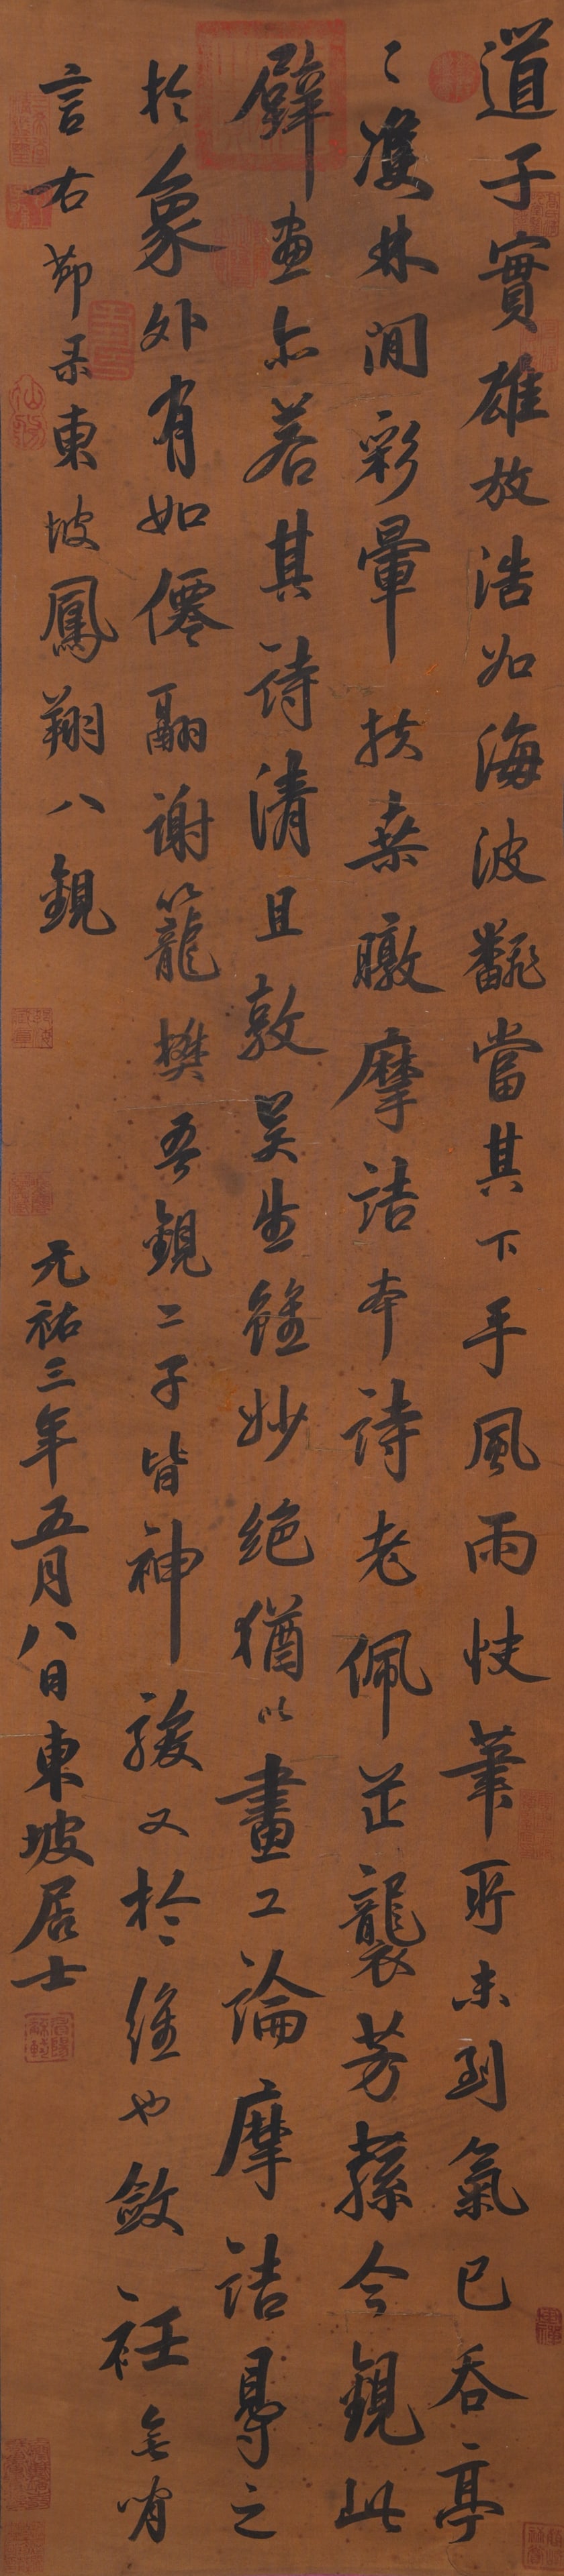 道子實雄放浩如海波翻當其下手風雨快筆所未到氣已吞亭
〻雙林間彩暈扶桑暾摩詰本詩老佩芷襲芳蓀今觀此
壁畫亦若其詩清且敦吴生雖妙絕猶以畫工論摩詰得之
於象外有如僊翮謝籠樊吾觀二子皆神駿又於維也斂衽無間
言右節录東坡鳳翔八觀
元祐三年五月八日東坡居士